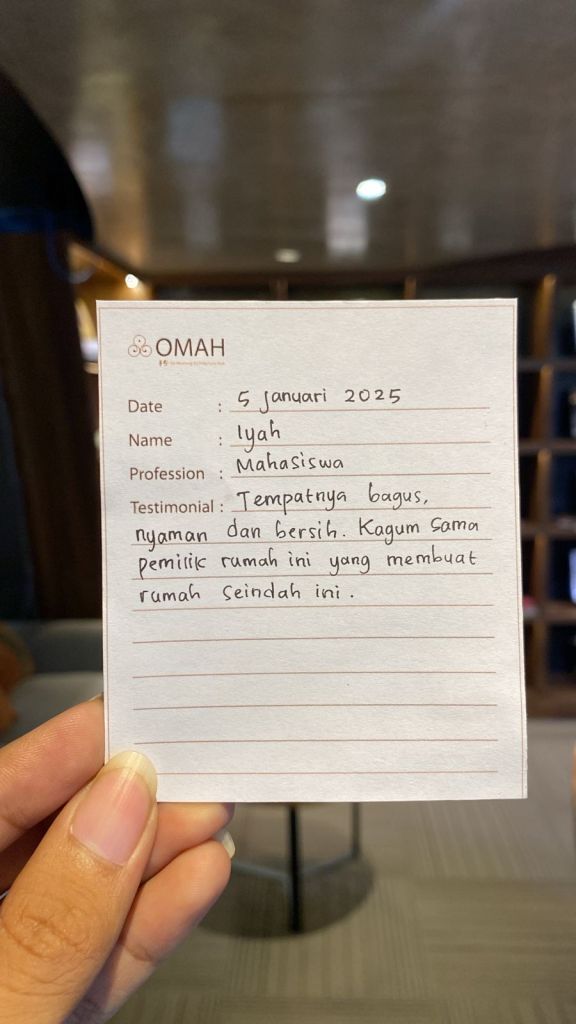 OMAH
Date : 5 Januari 2025
Name : Iyah
Profession : Mahasiswa
Testimonial : Tempatnya bagus,
nyaman dan bersih. Kagum sama
pemilik rumah ini yang membuat
rumah seindah ini.